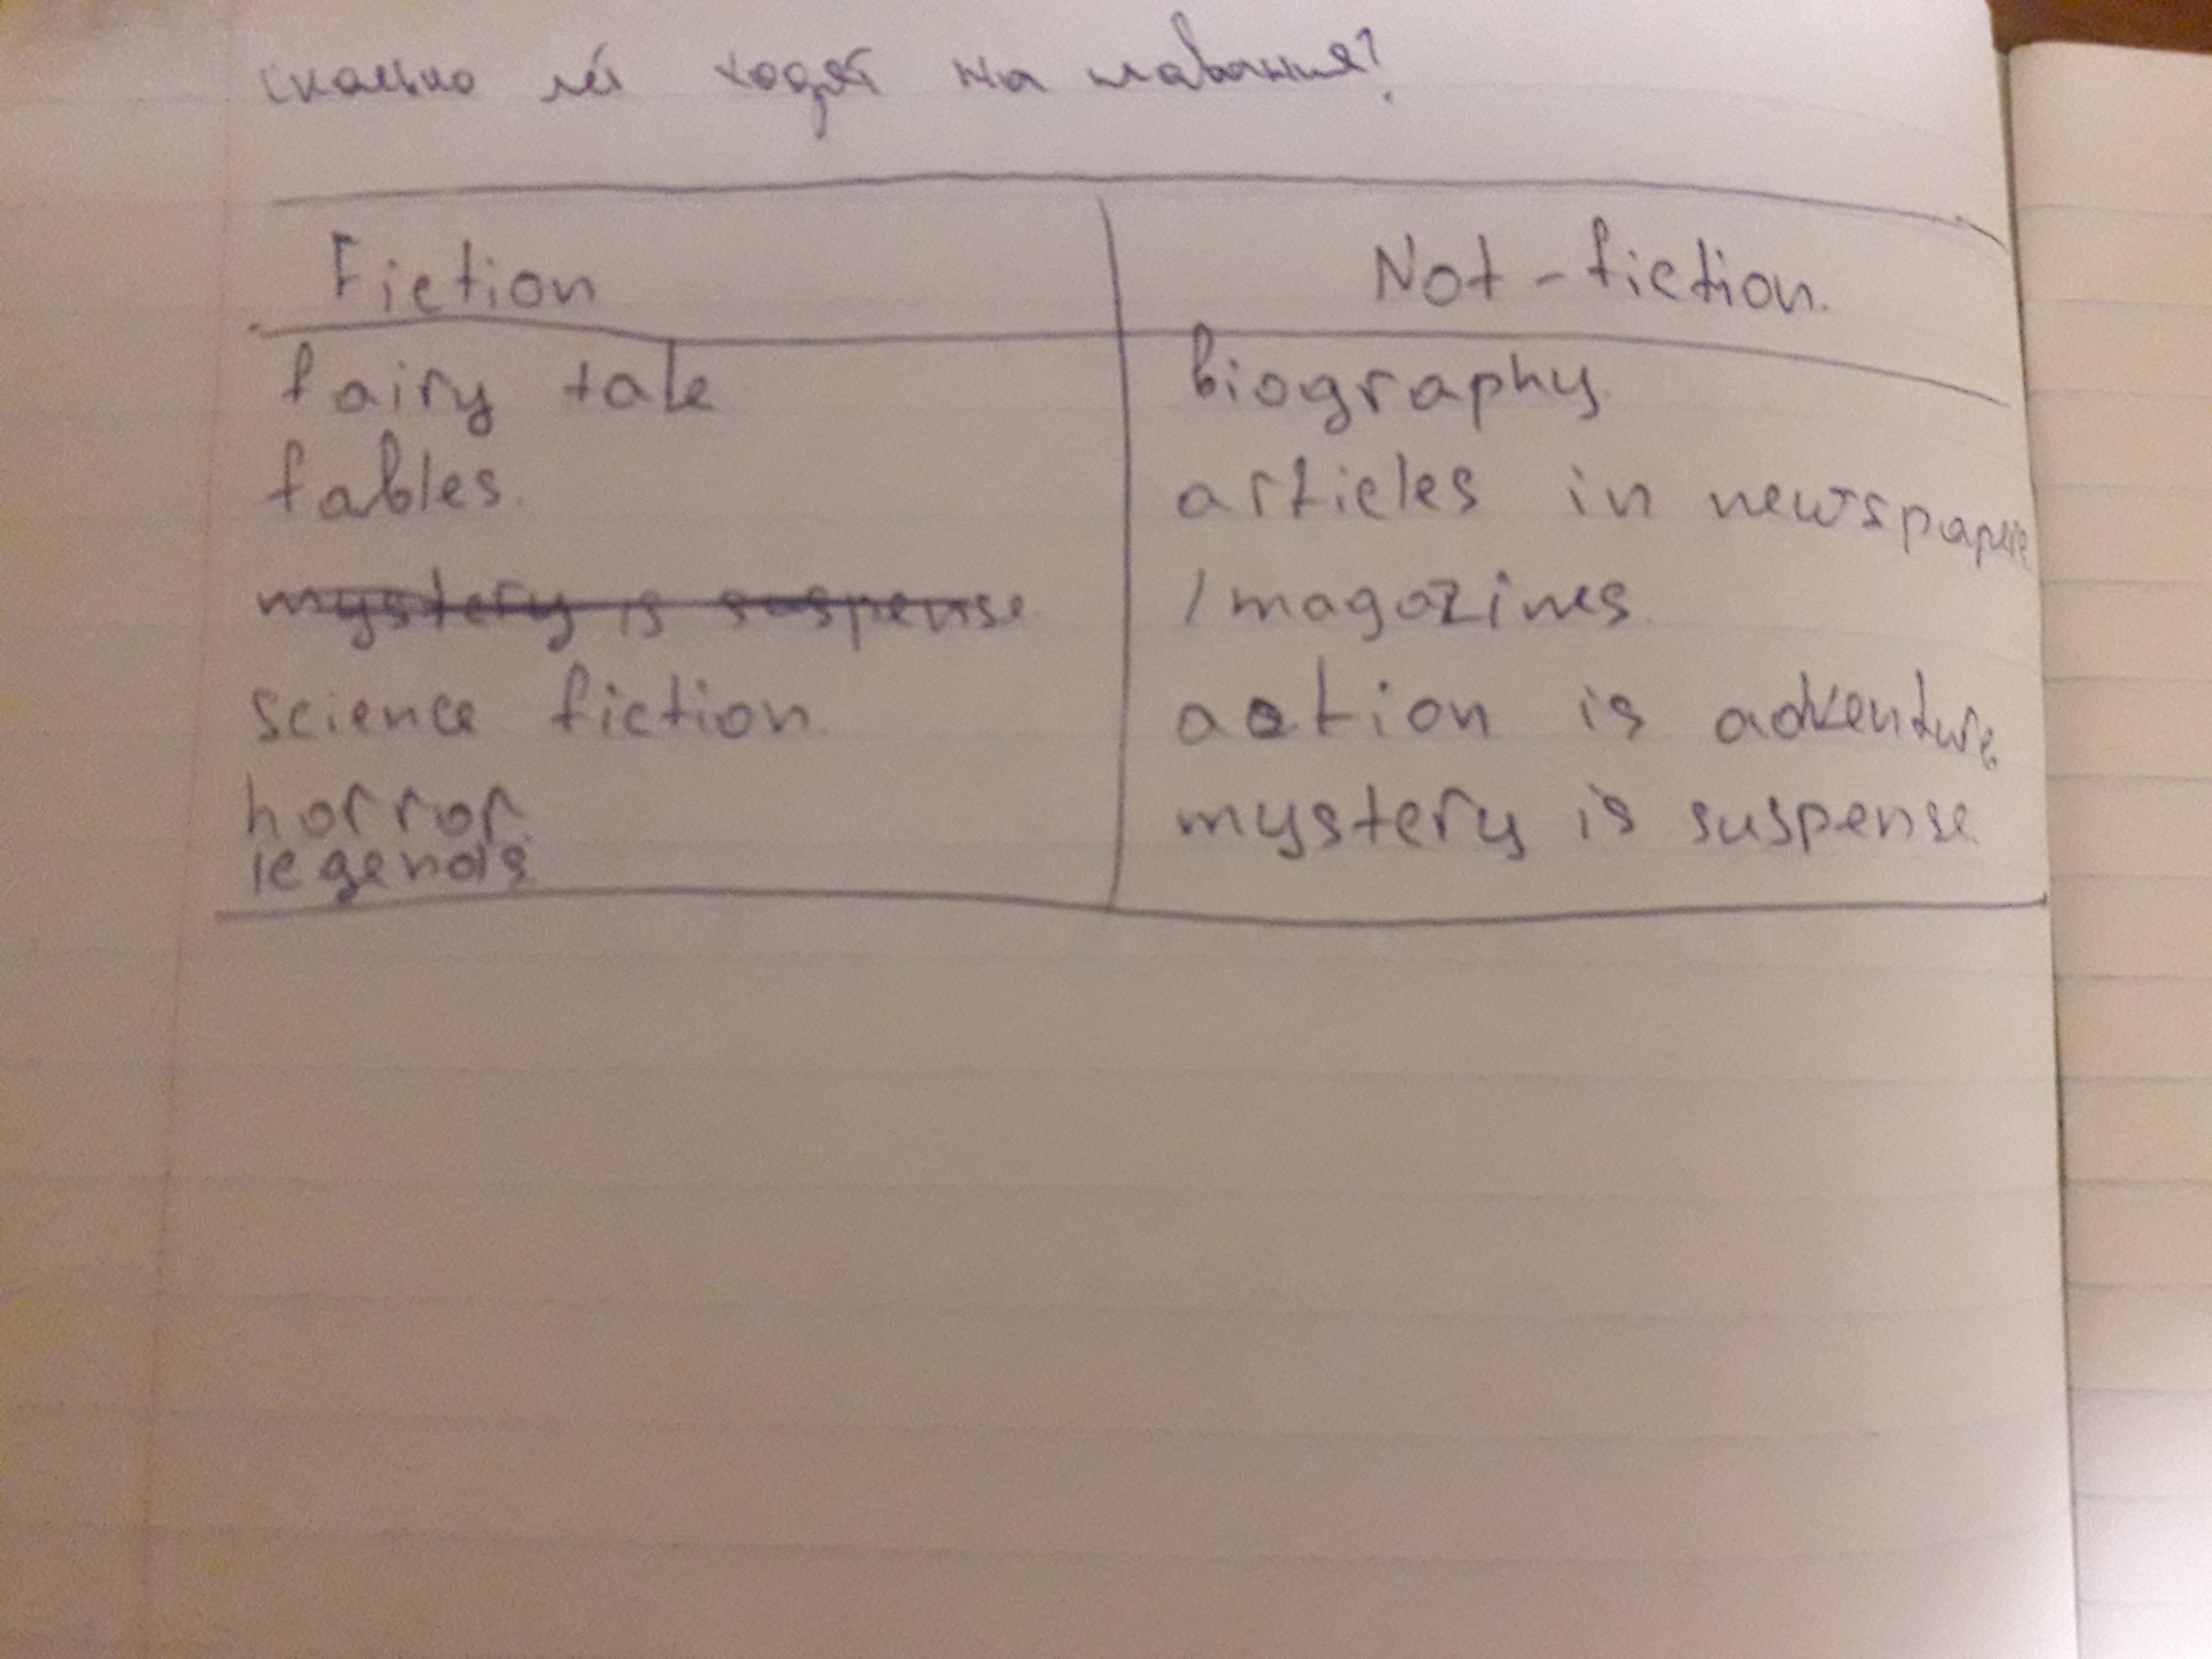 сколько лет ходят на плавание?
Fiction
Not-fiction.
fairy tale
biography.
fables.
articles in newspapers
mystery is suspense
/magazines.
science fiction.
action is adventure
horror.
mystery is suspense
legends